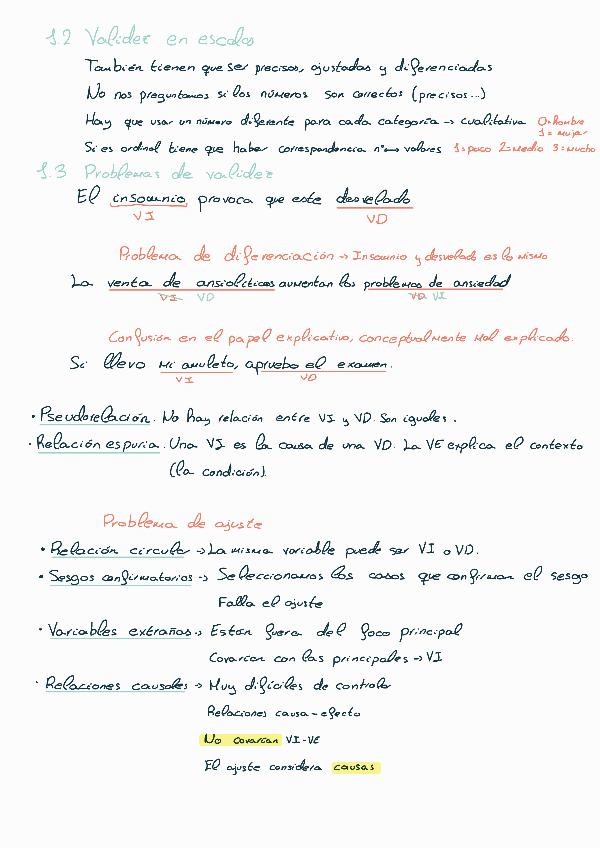 1.2 Validez en escalas
También tienen que ser precisos, ajustados y diferenciados
No nos preguntamos si los números son correctos (precisos...)
Hay que usar un número diferente para cada categoría → cualitativa 0=hombre
1 = mujer
Si es ordinal tiene que haber correspondencia nº↔ valores 1=poco 2=Medio 3=Mucho
1.3 Problemas de validez
El insomnio provoca que este desvelado
VI VD
Problema de diferenciación → Insomnio y desvelado es lo mismo
La venta de ansiolíticos aumentan los problemas de ansiedad
VI VD VD VI
Confusión en el papel explicativo, conceptualmente mal explicado.
Si llevo mi amuleto, apruebo el examen.
VI VD
• Pseudorelación. No hay relación entre VI y VD. Son iguales.
• Relación espuria. Una VI es la causa de una VD. La VE explica el contexto
(la condición).
Problema de ajuste
• Relación circular → La misma variable puede ser VI o VD.
• Sesgos confirmatorios → Seleccionamos los casos que confirman el sesgo
Falla el ajuste
• Variables extrañas → Están fuera del foco principal
Covarían con las principales → VI
• Relaciones causales → Muy difíciles de controlar
Relaciones causa-efecto
No covarían VI-VE
El ajuste considera causas